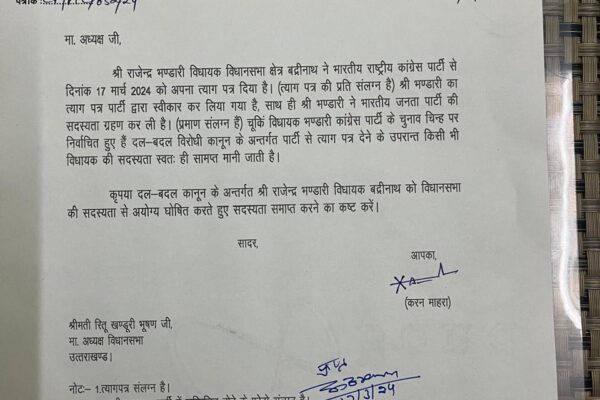 मा. अध्यक्ष जी,
श्री राजेन्द्र भण्डारी विधायक विधानसभा क्षेत्र बद्रीनाथ ने भारतीय राष्ट्रीय कांग्रेस पार्टी से
दिनांक 17 मार्च 2024 को अपना त्याग पत्र दिया है। (त्याग पत्र की प्रति संलग्न है) श्री भण्डारी का
त्याग पत्र पार्टी द्वारा स्वीकार कर लिया गया है, साथ ही श्री भण्डारी ने भारतीय जनता पार्टी की
सदस्यता ग्रहण कर ली है। (प्रमाण संलग्न हैं) चूकि विधायक भण्डारी कांग्रेस पार्टी के चुनाव चिन्ह पर
निर्वाचित हुए हैं दल–बदल विरोधी कानून के अन्तर्गत पार्टी से त्याग पत्र देने के उपरान्त किसी भी
विधायक की सदस्यता स्वतः ही सामप्त मानी जाती है।
कृपया दल–बदल कानून के अन्तर्गत श्री राजेन्द्र भण्डारी विधायक बद्रीनाथ को विधानसभा
की सदस्यता से अयोग्य घोषित करते हुए सदस्यता समाप्त करने का कष्ट करें।
सादर,
आपका,
(करन माहरा)
श्रीमती रितू खण्डूरी भूषण जी,
मा. अध्यक्ष विधानसभा
उत्तराखण्ड।
नोटः– 1.त्यागपत्र संलग्न है।